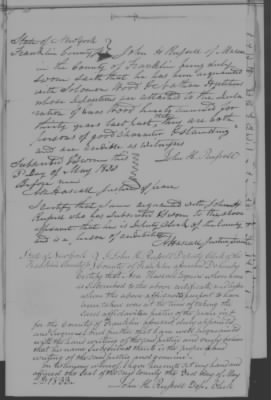 State of New York
Franklin County SS John H Russell of Malone
in the County of Franklin being duly
sworn saith that he has been acquainted
with Solomon Wood & Nathan
whose Depositions are attached to the Decla
ration of Wood hereby annexed for
thirty years last past, they are both
persons of good character & standing
and are credible as witnesses
Subscribed & Sworn this
3d day of May 1833
Before me
John H. Russell
Justice of Peace
I certify that I am acquainted with John H
Russell who has subscribed & sworn to the above
affidavit that he is Deputy Clerk of the County
and is a person of credibility
State of New York
Franklin County SS I John H. Russell Deputy Clerk of the
County of Franklin aforesaid Do hereby
Certify that Asa Hascall Esquire whose name
is subscribed to the above certificate and before
whom the above affidavit purports to have
been taken was at the time of taking the
same affidavit a Justice of the peace in &
for the County of Franklin aforesaid duly appointed
and that I am well acquainted
with the hand writing of the said Justice and verily believe
that the name subscribed thereto is the proper hand
writing of the said Justice and genuine.
In testimony whereof I have hereunto set my hand and
affixed the seal of the said County the third day of May
1833.
John H. Russell Depy Clerk